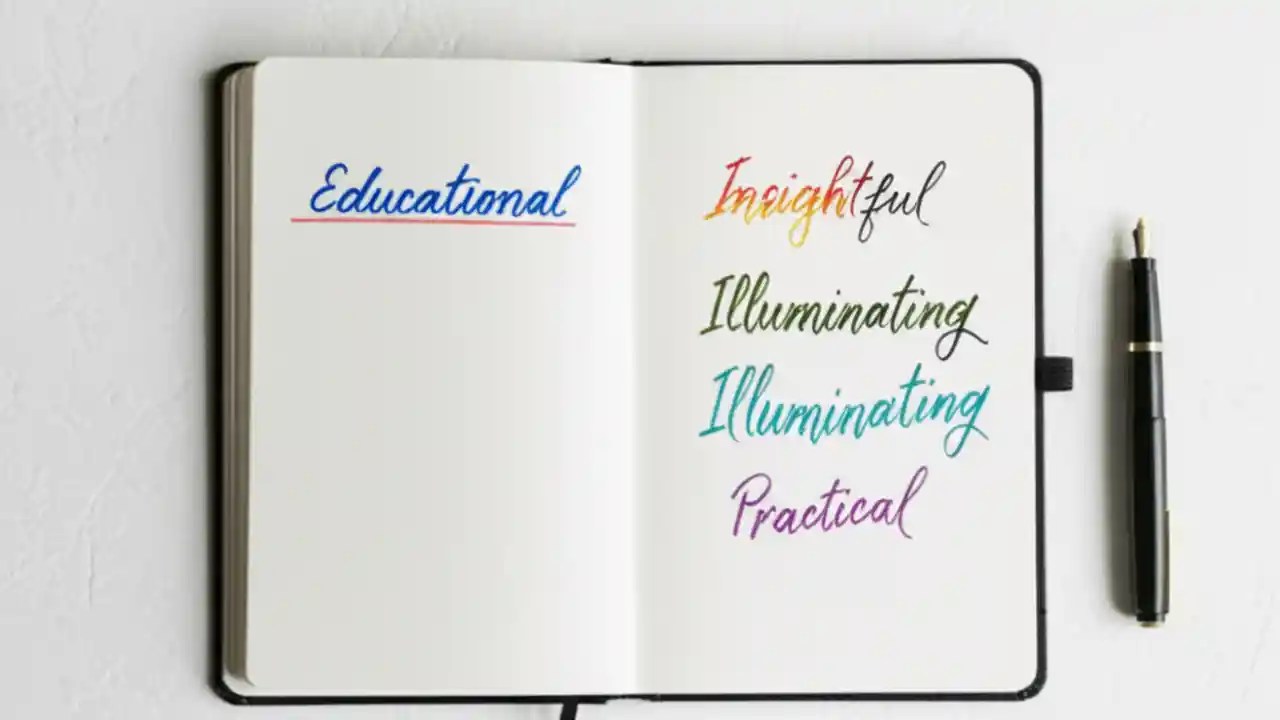 Educational
Insightful
Illuminating
Illuminating
Practical